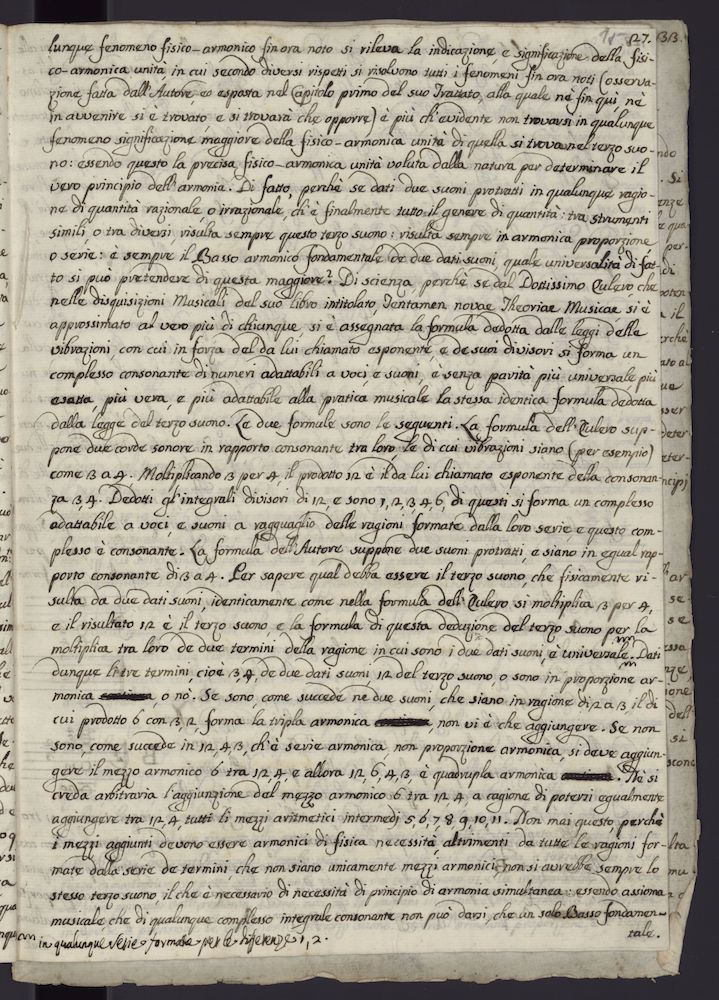 27.
lunque fenomeno fisico-armonico fin ora noto si rileva la indicazione, e significazione della fisi-
co-armonica unità, in cui secondo diversi rispetti si risolvono tutti i fenomeni fin ora noti (osserva-
zione fatta dall'Autore, ed esposta nel Capitolo primo del suo Trattato, alla quale nè fin quì, nè
in avvenire si è trovato, e si troverà che opporre) è più ch'evidente non trovarsi in qualunque
fenomeno significazione maggiore della fisico-armonica unità di quella si trova nel terzo suo-
no: essendo questo la precisa fisico-armonica unità voluta dalla natura per determinare il
vero principio dell'armonia. Di fatto, perchè se dati due suoni protratti in qualunque ragio-
ne di quantità razionale, o irrazionale, ch'è finalmente tutto il genere di quantità: tra strumenti
simili, o tra diversi risulta sempre questo terzo suono: risulta sempre in armonica proporzione,
o serie: è sempre il Basso armonico fondamentale de due dati suoni, quale universalità di fat-
to si può pretendere di questa maggiore? Di scienza, perchè se dal Dottissimo Eulero, che
nelle disquisizioni Musicali del suo libro intitolato, Tentamen novae Theoriae Musicae si è
approssimato al vero più di chiunque si è assegnata la formula dedotta dalle leggi delle
vibrazioni, con cui in forza del da lui chiamato esponente, e de suoi divisori si forma un
complesso consonante di numeri adattabili a voci, e suoni, è senza parità più universale, più
esatta, più vera, e più adattabile alla pratica musicale la stessa identica formula dedotta
dalla legge del terzo suono. Le due formule sono le seguenti. La formula dell'Eulero sup-
pone due corde sonore in rapporto consonante tra loro, le di cui vibrazioni siano (per esempio)
come 3 a 4. Moltiplicando 3 per 4, il prodotto 12 è il da lui chiamato esponente della consonan-
za 3, 4. Dedotti gl'integrali divisori di 12, e sono 1, 2, 3, 4, 6, di questi si forma un complesso
adattabile a voci, e suoni a ragguaglio delle ragioni formate dalla loro serie, e questo com-
plesso è consonante. La formula dell'Autore suppone due suoni protratti, e siano in egual rap-
porto consonante di 3 a 4. Per sapere qual debba essere il terzo suono, che fisicamente ri-
sulta da due dati suoni, identicamente come nella formula dell'Eulero si moltiplica 3 per 4,
e il risultato 12 è il terzo suono, e la formula di questa deduzione del terzo suono per la
moltiplica tra loro de due termini della ragione in cui sono i due dati suoni, è universale. Dati
dunque li tre termini, cioè 3, 4 de due dati suoni, 12 del terzo suono, o sono in proporzione ar-
monica, o nò. Se sono come succede ne due suoni, che siano in ragione di 2 a 3, il di
cui prodotto 6 con 3, 2 forma la tripla armonica, non vi è che aggiungere. Se non
sono, come succede in 12, 4, 3, ch'è serie armonica, non proporzione armonica, si deve aggiun-
gere il mezzo armonico 6 tra 12, 4, e allora 12, 6, 4, 3, è quadrupla armonica. Nè si
creda arbitraria l'aggiunzione del mezzo armonico 6 tra 12, 4, a cagione di potersi egualmente
aggiungere tra 12, 4, tutti li mezzi aritmetici intermedj 5, 6, 7, 8, 9, 10, 11. Non mai questo, perchè
i mezzi aggiunti devono essere armonici di fisica necessità, altrimenti da tutte le ragioni for-
mate dalla serie de termini, che non siano unicamente mezzi armonici non si avrebbe sempre lo
stesso terzo suono, il che è necessario di necessità di principio di armonia simultanea: essendo assioma
musicale che di qualunque complesso integrale consonante non può darsi, che un solo Basso fondamen-
tale.
in qualunque serie formata per le diferenze 1, 2.